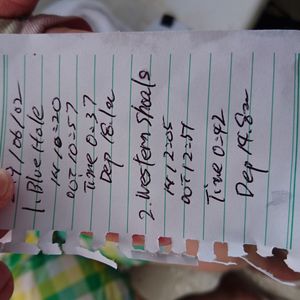 1. Blue Hole
IN 10:20
OUT 10:57
Time 0:37
Dep 18.1m
2. Western Shoals
IN 12:05
OUT 12:47
Time 0:42